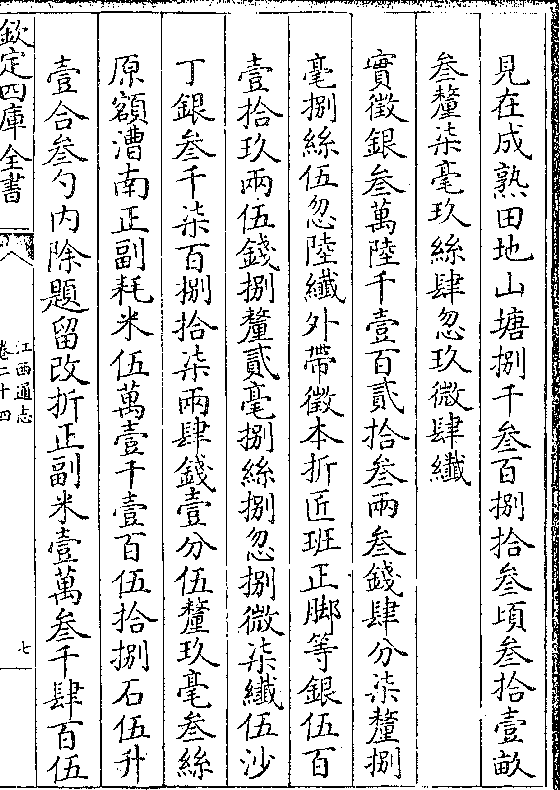 見在成熟田地山塘捌千叁百捌拾叁頃叁拾壹畝
叁釐柒毫玖絲肆忽玖微肆纎
實徵銀叁萬陸千壹百貳拾叁兩叁錢肆分柒釐捌
毫捌絲伍忽陸纎外帶徵本折匠班正脚等銀伍百
壹拾玖兩伍錢捌釐貳毫捌絲捌忽捌微柒纎伍沙
丁銀叁千柒百捌拾柒兩肆錢壹分伍釐玖毫叁絲
原額漕南正副耗米伍萬壹千壹百伍拾捌石伍升
壹合叁勺內除題留改折正副米壹萬叁千肆百伍
欽定四庫全書
江西通志
卷二十四
七